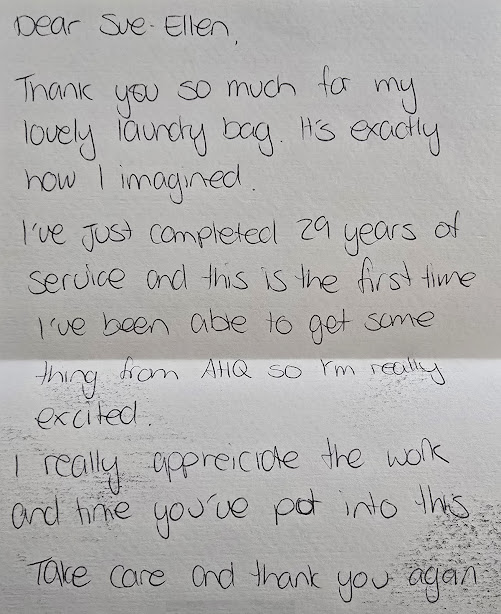 Dear Sue-Ellen,
Thank you so much for my
lovely laundry bag. It's exactly
how I imagined.
I've just completed 29 years of
service and this is the first time
I've been able to get some
thing from AHQ so I'm really
excited.
I really appreiciate the work
and time you've put into this
Take care and thank you again